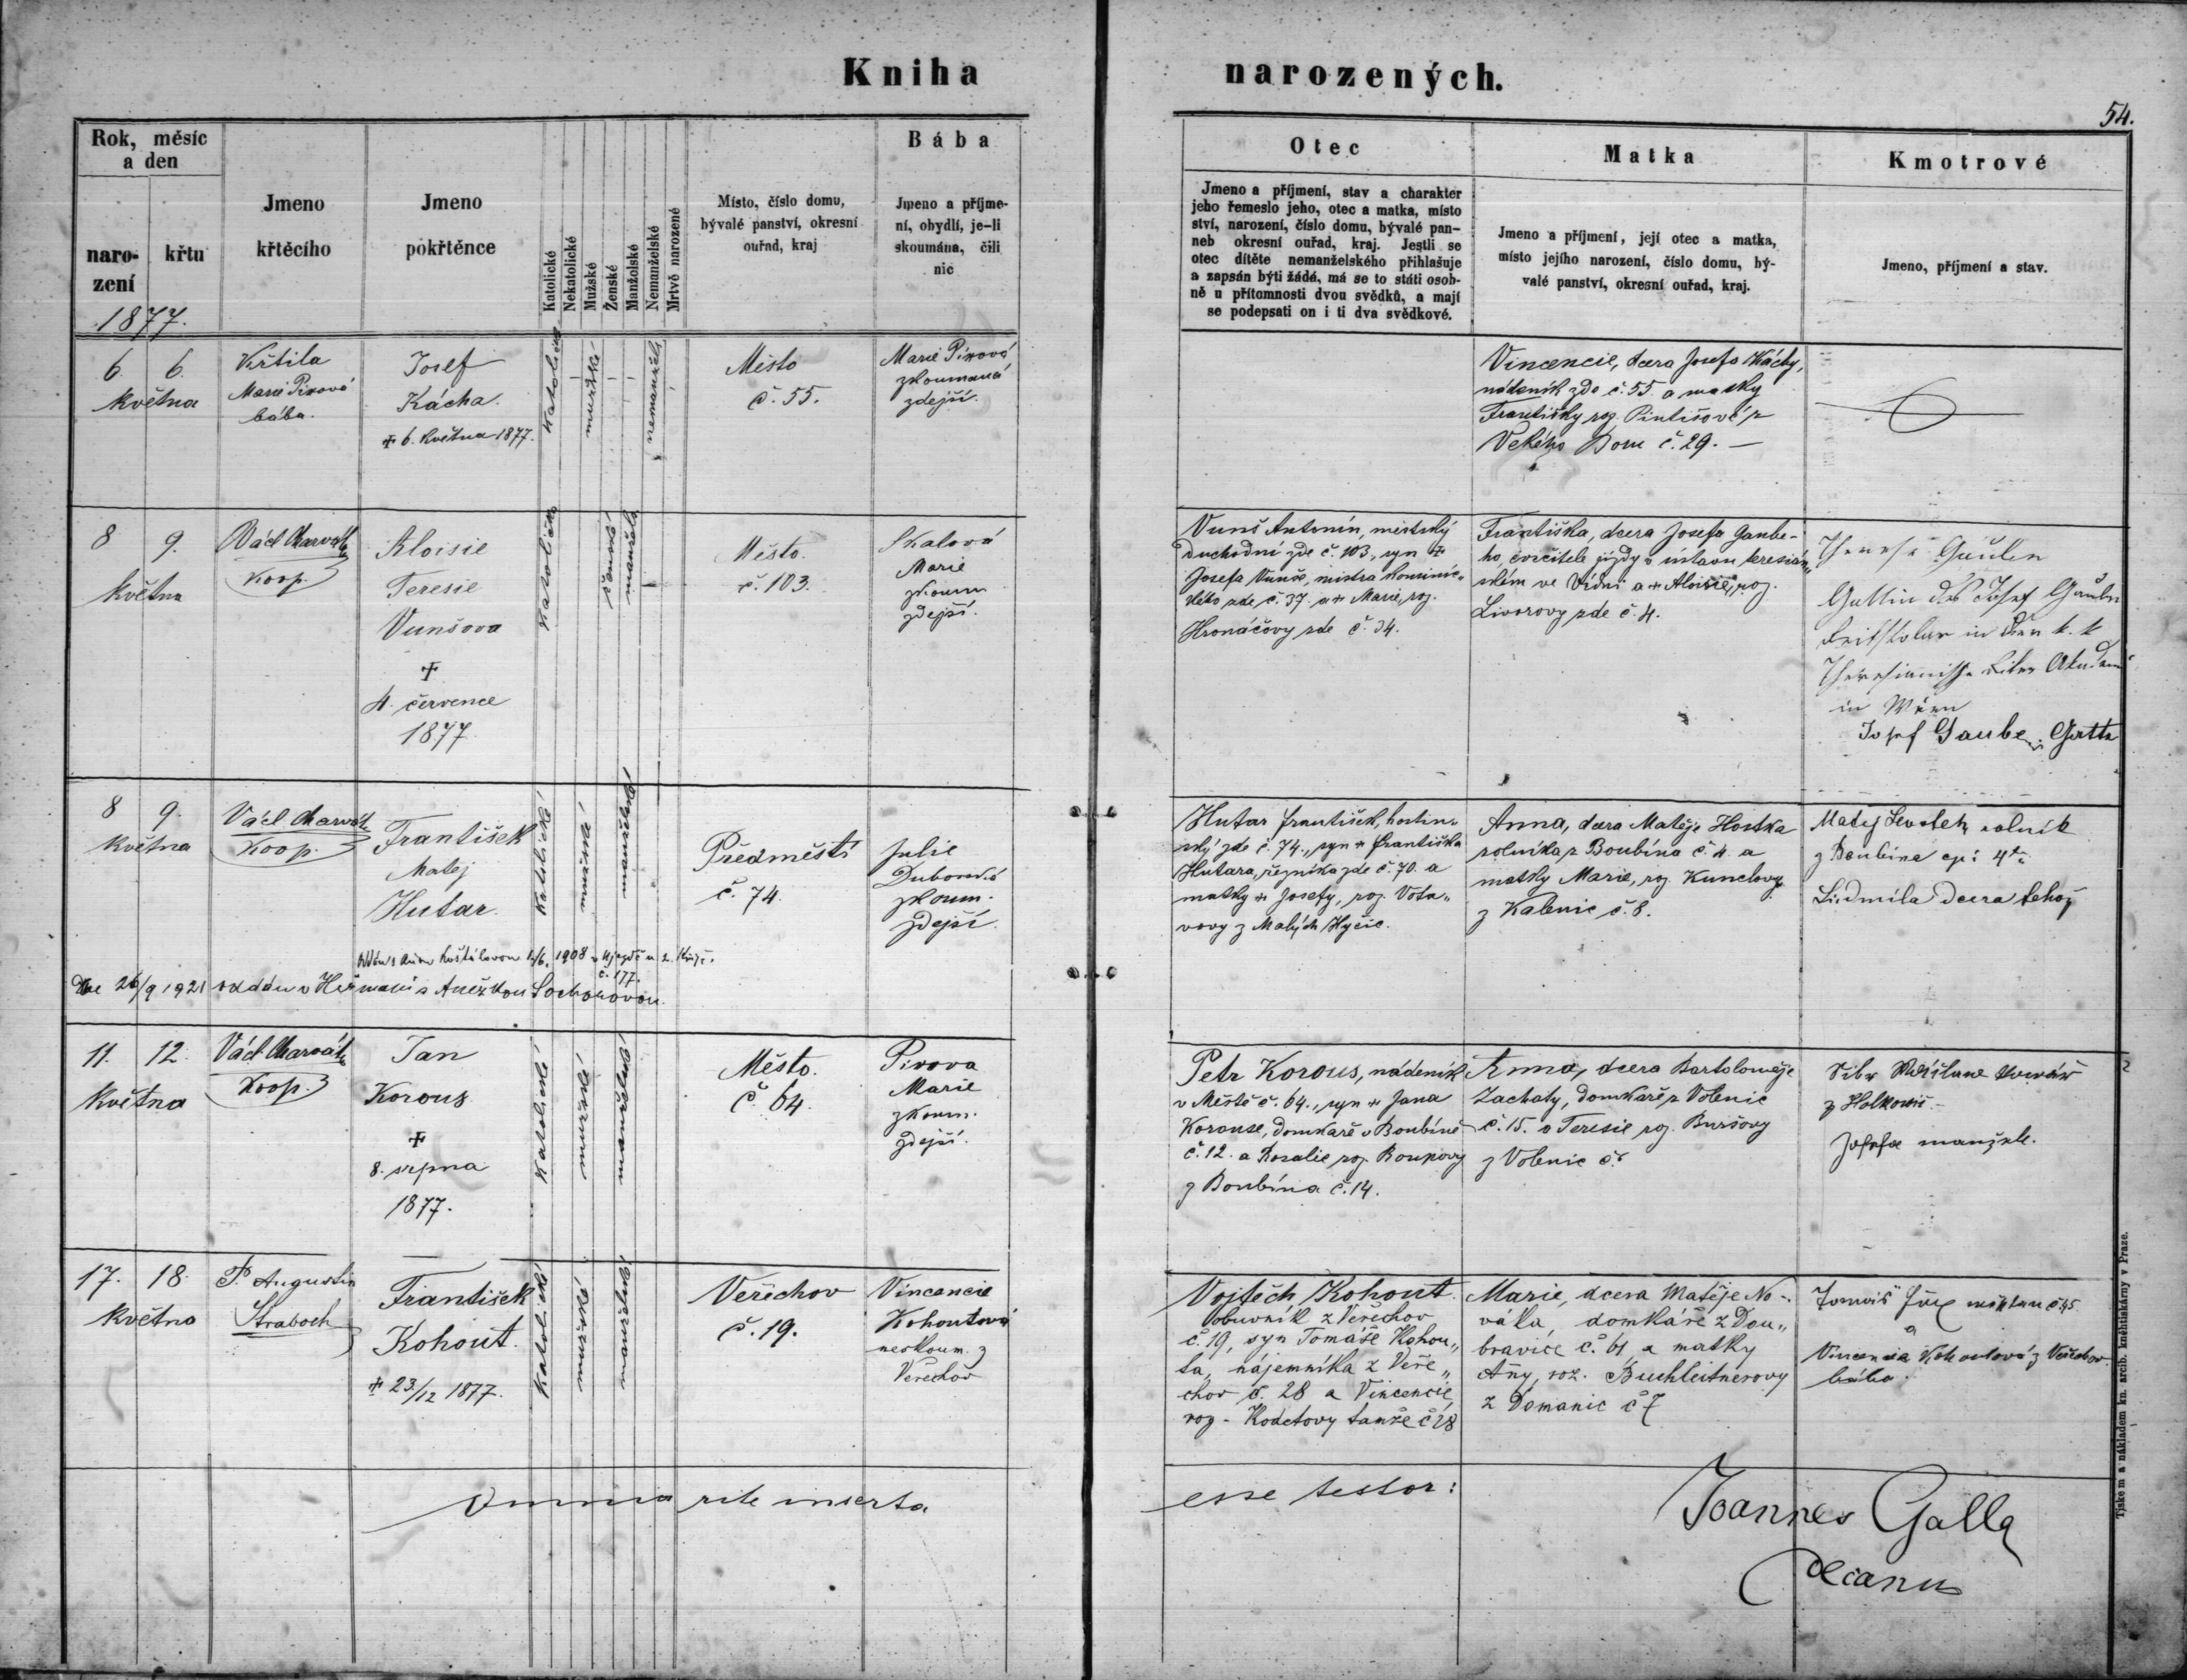 Kniha
narozených.
54.
Rok, měsíc
a den
naro-
zení
křtu
1877.
Jmeno
křtěcího
Jmeno
pokřtěnce
Katolické
Nekatolické
Mužské
Ženské
Manžolské
Nemanželské
Mrtvě narozené
Místo, číslo domu,
bývalé panství, okresní
ouřad, kraj
Bába
Jmeno a příjme-
ní, obydlí, je-li
skoumána, čili
nic
Otec
Jmeno a příjmení, stav a charakter
jeho řemeslo jeho, otec a matka, místo
ství, narození, číslo domu, bývalé pan-
neb okresní ouřad, kraj. Jestli se
otec dítěte nemanželského přihlašuje
a zapsán býti žádá, má se to státi osob-
ně u přítomnosti dvou svědků, a mají
se podepsati on i ti dva svědkové.
Matka
Jmeno a příjmení, její otec a matka,
místo jejího narození, číslo domu, bý-
valé panství, okresní ouřad, kraj.
Kmotrové
Jmeno, příjmení a stav.
6. 6.
května
Křtila
Marie Pixová
bába.
Josef
Kácha.
+ 6. května 1877.
katolické
mužské
nemanžels
Město
č. 55.
Marie Pixová
zkoumaná
zdejší.
Vincencie, dcera Josefa Káchy,
nádeník zde č. 55. a matky
Františky roz. z
Velkého Boru č. 29. —
8 9.
května
Václ Charvát
Koop.
Aloisie
Teresie
Vunšova
+
4. července
1877
katolické
ženské
manžels
Město.
č. 103.
Skalová
Marie
zkoum
zdejší.
Vunš Antonín, městský
duchodní zde č. 103., syn +
Josefa Vunše, mistra kominic„
kého zde č. 37. a + Marie, roz.
Hronáčovy zde č. 34.
Františka, dcera Josefa Gaube-
ho, cvičitele jízdy v ústavu teresián„
ském ve Vídni a + Aloisie, roz.
Livorovy zde č. 4.
Therese Gauben
Gattin des Josef Gauben
in der k. k
in Wien
Josef Gaube Gatte
8 9.
května
Václ Charvát
Koop.
František
Matěj
Hutar
katolické
mužské
manželské
Předměstí
č. 74.
Julie
Dubovská
zkoum.
zdejší.
Hutar František, hostin„
ský zde č. 74., syn + Františka
Hutara, řezníka zde č. 70. a
matky + Josefy, roz. Vota„
vovy z Malých Hyčic.
Anna, dcera Matěje Hostka
rolníka z Boubína č. 4. a
matky Marie, roz. Kunclovy
z Kalenic č. 8.
Matěj rolník
z Boubína
Ludmila dcera tehož
Oddán s Annou Koštálovou 14/6. 1908 v
č. 177.
Dne 26/9 1921 oddán v Heřmani s Anežkou Sochorovou.
11. 12.
května
Václ Charvát
Koop.
Jan
Korous
+
8. srpna
1877.
katolické
mužské
manželské
Město.
č. 64.
Pixova
Marie
zkoum.
zdejší.
Petr Korous, nádeník
v Městě č. 64., syn + Jana
Korouse, domkaře v Boubíně
č. 12. a Rosalie roz. Roupovy
z Boubína č. 14.
Anna, dcera Bartoloměje
Zachaty, domkaře z Volenic
č. 15. a Teresie roz. Buršovy
z Volenic č.
kovář
z Holkovic.
Josefa manžele.
17. 18.
května
P. Augustin
Straboch
František
Kohout.
+ 23/12 1877.
katolické
mužské
manželské
Veřechov
č. 19.
Vincencie
Kohoutová
neskoum. z
Veřechov
Vojtěch Kohout
obuvník z Veřechov
č. 19, syn Tomáše Kohou„
ta, nájemníka z Veře„
chov č. 28 a Vincencie,
roz. Kodetovy tamže č 28
Marie, dcera Matěje No-
váka, domkáře z Dou„
bravice č. 61 a matky
Anny, roz. Buchleitnerovy
z Domanic č 7
Tomáš měšťan č 45.
a
Vincencia Kohoutová z Veřechov
bába.
Omnia rite inserta
esse testor:
Joannes Galla
Decanus
Tiskem a nákladem kn. arcib. kněhtiskárny v Praze.